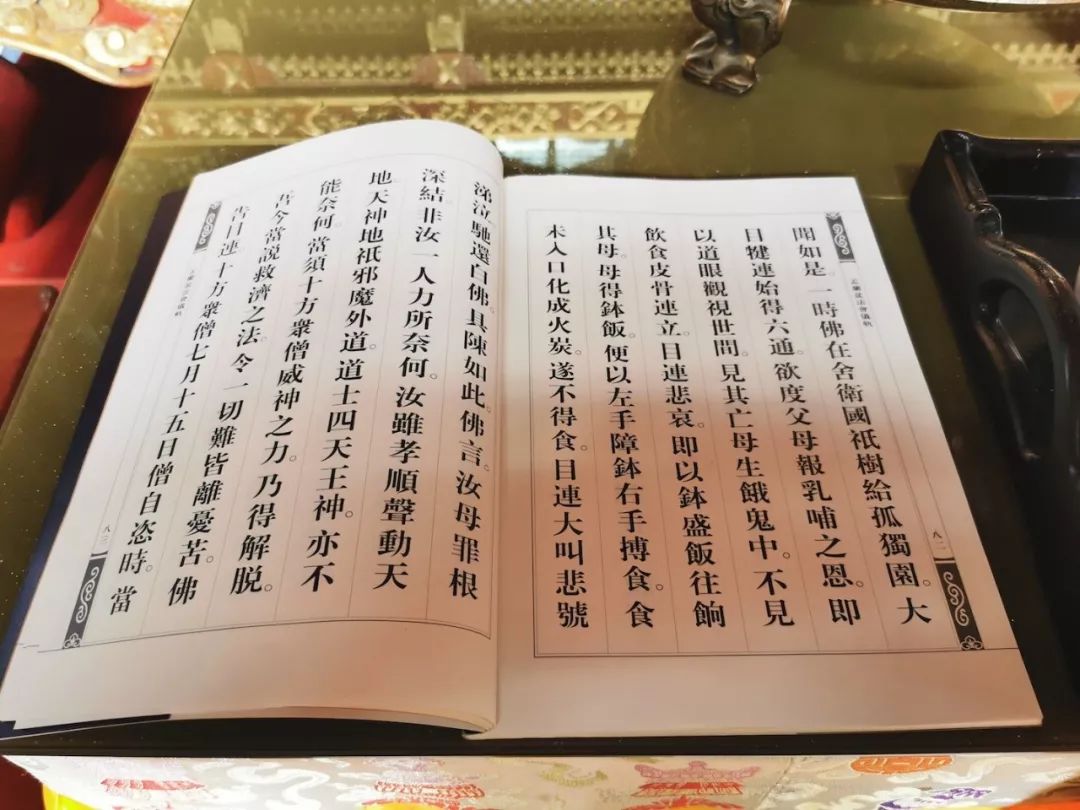 盂蘭盆法會儀軌
八二
聞如是。一時佛在舍衛國祇樹給孤獨園。大
目犍連始得六通。欲度父母報乳哺之恩。即
以道眼觀視世間。見其亡母生餓鬼中。不見
飲食皮骨連立。目連悲哀。即以鉢盛飯往餉
其母。母得鉢飯。便以左手障鉢右手搏食。食
未入口化成火炭。遂不得食。目連大叫悲號
涕泣馳還白佛。具陳如此。佛言。汝母罪根
深結。非汝一人力所奈何。汝雖孝順聲動天
地天神地祇邪魔外道。道士四天王神。亦不
能奈何。當須十方衆僧威神之力。乃得解脱。
吾今當説救濟之法。令一切難皆離憂苦。佛
告目連。十方衆僧七月十五日僧自恣時。當
盂蘭盆法會儀軌
八三